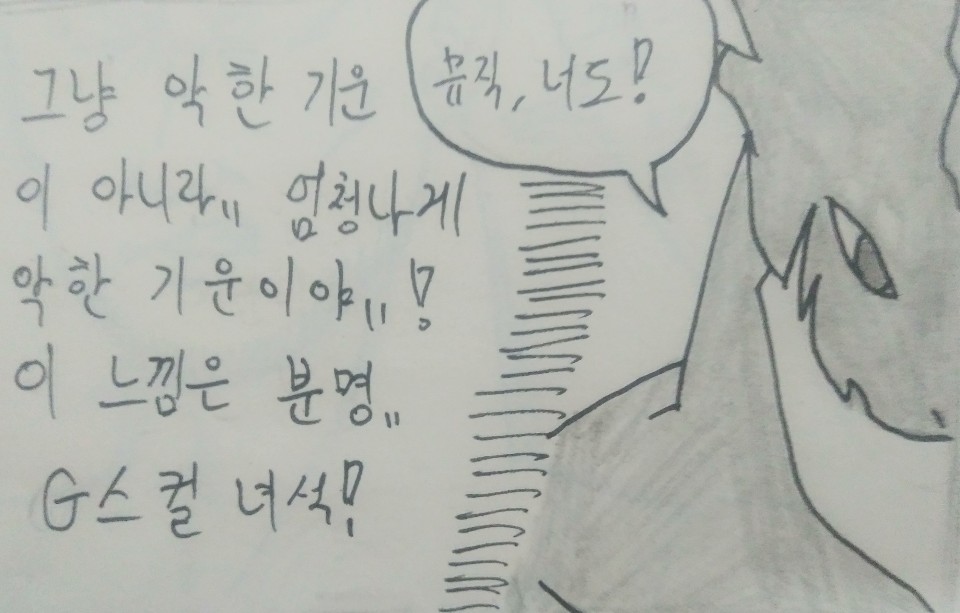 그냥 악한 기운
이 아니라,, 엄청나게
악한 기운이야,,!
이 느낌은 분명,,
G스컬 녀석!
뮤직, 너도!